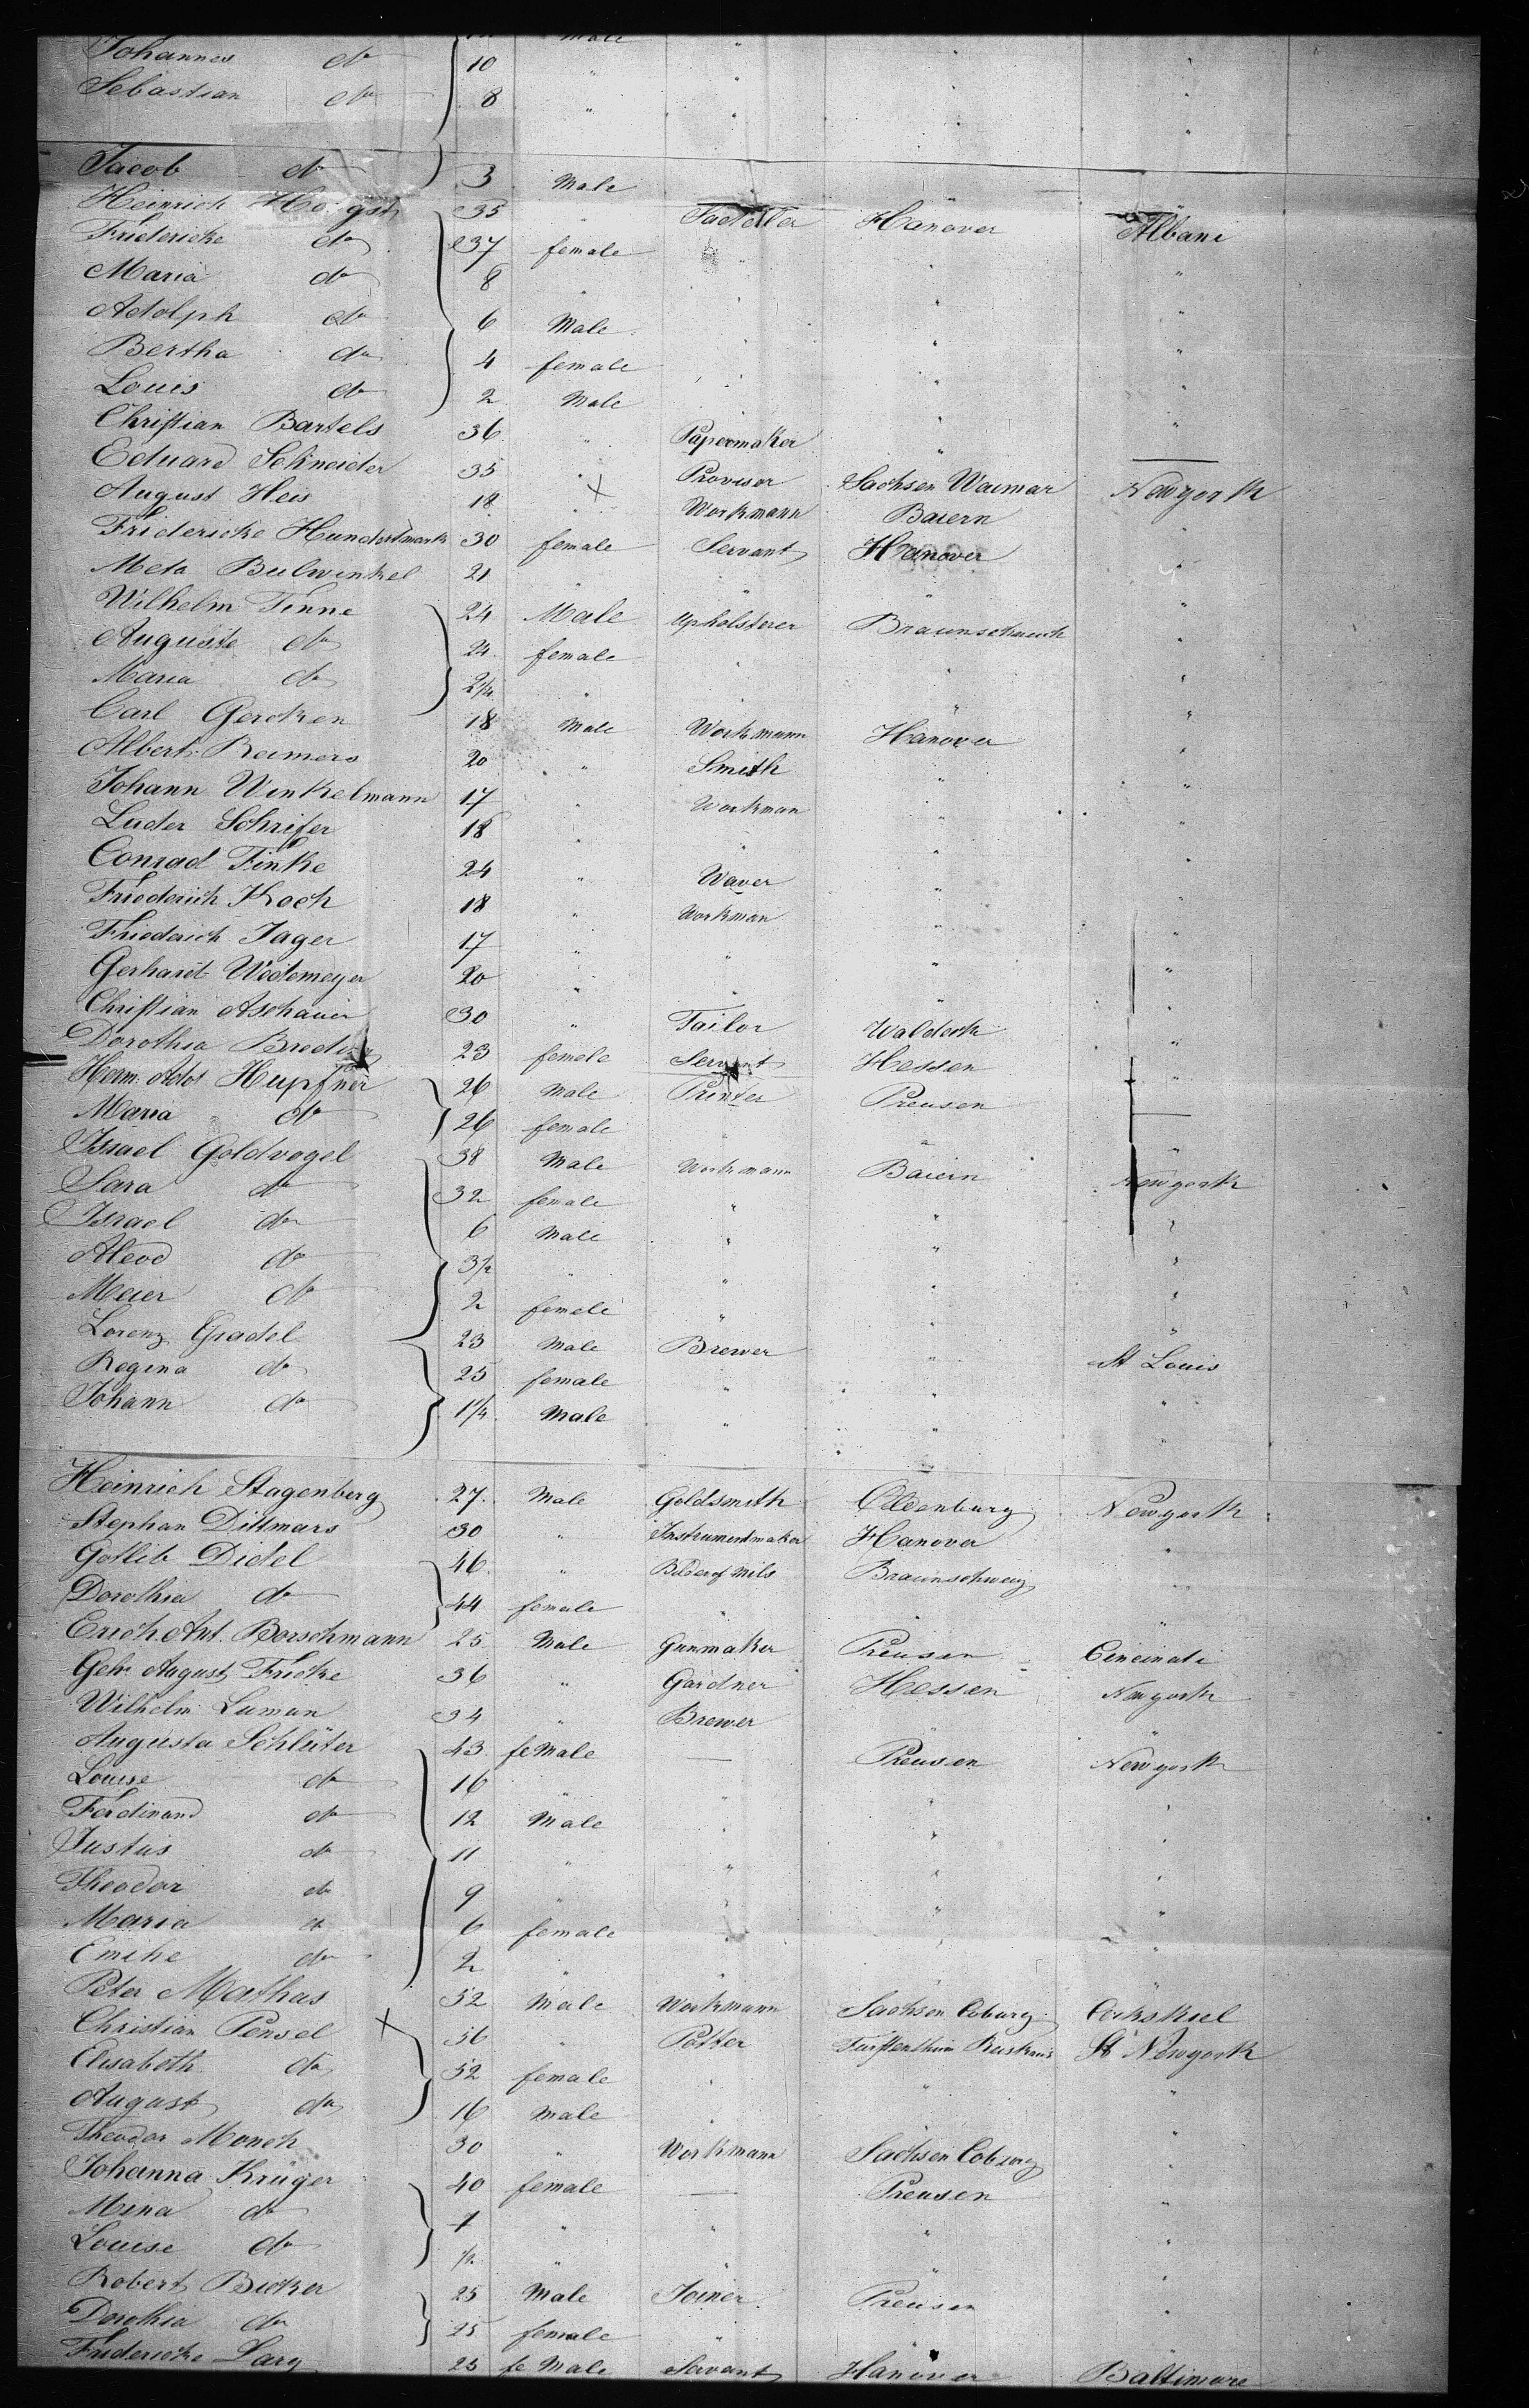 Male
Johannes do 10 " " "
Sebastian do 8 " " "
Jacob do 3 Male
Heinrich 35 " Hanover Albani
Fridericke do 37 female " " "
Maria do 8 " " " "
Adolph do 6 Male " " "
Bertha do 4 female " " "
Louis do 2 Male " " "
Christian Bartels 36 " Papermaker " "
Eduard Schneider 35 " Provisor Sachsen Waimar Newyork
August Heis 18 " Workmann Baiern "
Fridericke Hundertmark 30 female Servant Hanover "
Meta Bulwinkel 21 " " " "
Wilhelm Finne 24 Male Upholsterer Braunschweich "
Auguste do 24 female " " "
Maria do 2 1/4 " " " "
Carl Gercken 18 Male Workmann Hanover "
Albert Reimers 20 " Smith " "
Johann Winkelmann 17 " Workman " "
Luder Schrifer 18 " " " "
Conrad Finke 24 " Waver " "
Friederich Koch 18 " Workman " "
Friederich Jager 17 " " " "
Gerhard Wedemeyer 20 " " " "
Christian Aschauer 30 " Tailor Waldeck "
Dorothea 23 female Servant Hessen "
Herm. Adol Hupfner 26 Male Printer Preusen
Maria do 26 female " " "
Israel Goldvogel 38 Male Workmann Baiern Newyork
Sara do 32 female " " "
Israel do 6 Male " " "
do 3 1/2 " " " "
Meier do 2 female " " "
Lorenz Gradel 23 Male Brewer " St Louis
Regina do 25 female " " "
Johann do 1 1/4 Male " " "
Heinrich Stagenberg 27 Male Goldsmith Oldenburg Newyork
Stephan Dittmars 30 " Instrumentmaker Hanover "
Gotlib Dietel 46 " Bilder of Mils Braunschweig "
Dorothea do 44 female " " "
Erich Ant. Borschmann 25 Male Gunmaker Preusen Cincinati
Geh. August Fricke 36 " Gardner Hessen Newyork
Wilhelm Luman 34 " Brewer " "
Augusta Schlüter 43 feMale — Preusen Newyork
Louise do 16 " " " "
Ferdinand do 12 Male " " "
Justus do 11 " " " "
Theodor do 9 " " " "
Maria do 6 female " " "
Emilie do 2 " " " "
Peter Mathas 52 Male Workmann Sachsen Coburg
Christian Pensel 56 " Potter Fürstenthum St Newyork
Elisabeth do 52 female " " "
August do 16 Male " " "
Theodor Monch 30 " Workmann Sachsen Coburg "
Johanna Krüger 40 female — Preusen "
Mina do " " " "
Louise do 1/2 " " " "
Robert Bicker 25 Male Joiner Preusen "
Dorothea do 25 female " " "
Fridericke Lary 23 feMale Servant Hanover Baltimore